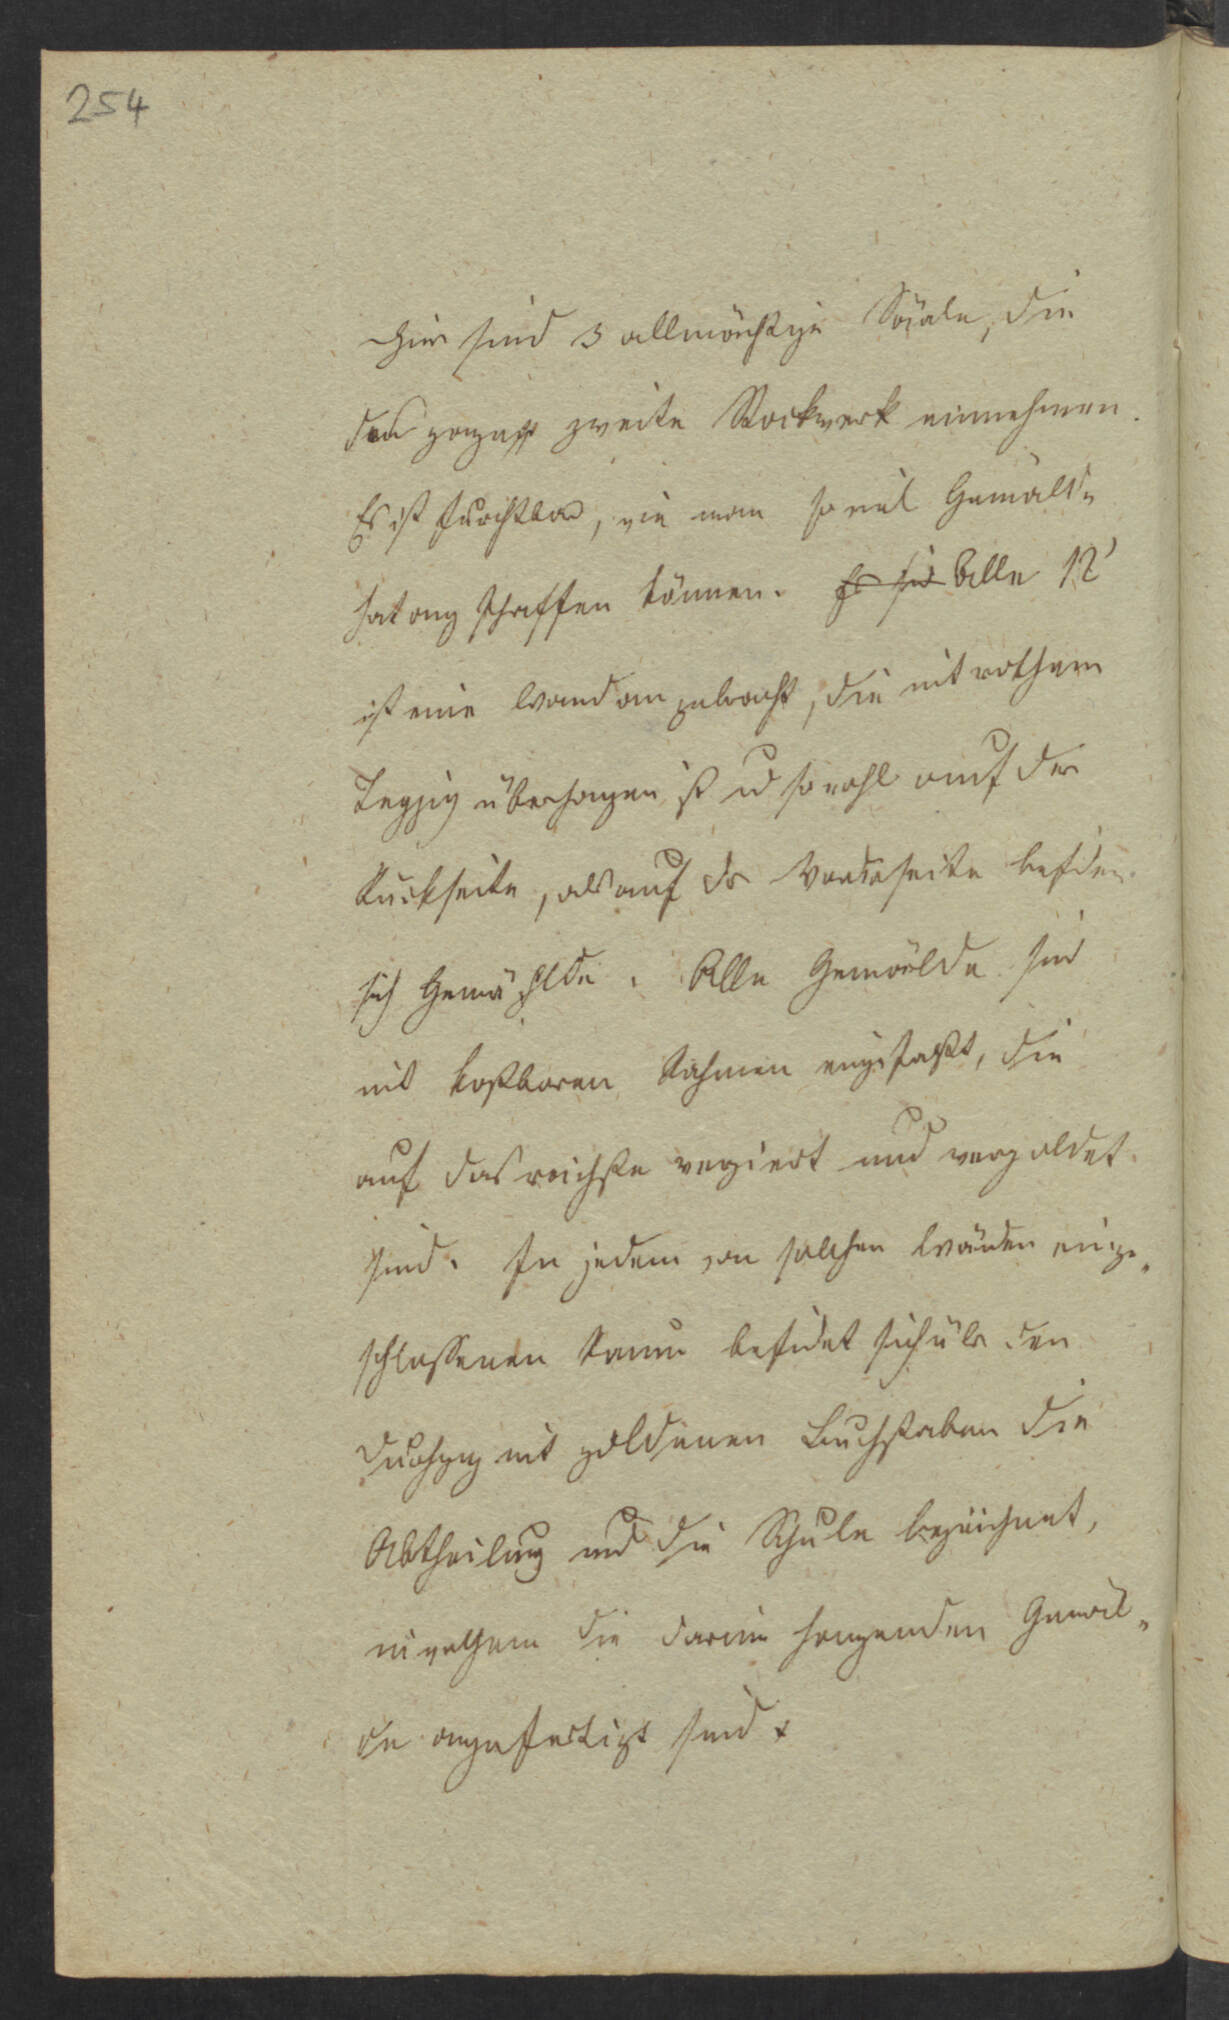 254
Hier sind 3 allmächtige Sääle, die
das ganze zweite Stockwerk einnehmen.
Es ist furchtbar, wie man so viel Gemälde
hat anschaffen können. Es sind Alle 12'
ist eine Wand angebracht, die mit rothem
Teppig überhangen ist u sowohl auf der
Rückseite, als auf der Vorderseite befinden
sich Gemählde. Alle Gemälde sind
mit kostbaren Rahmen eingefaßt, die
auf das reichste verziert und vergoldet
sind. In jedem von solchen Wänden einge„
schlossenen Raum befindet sich über den
Durchgang mit goldenen Buchstaben die
Abtheilung und die Schule bezeichnet,
in welchem die darinn hangenden Gemäl„
de angefertigt sind.